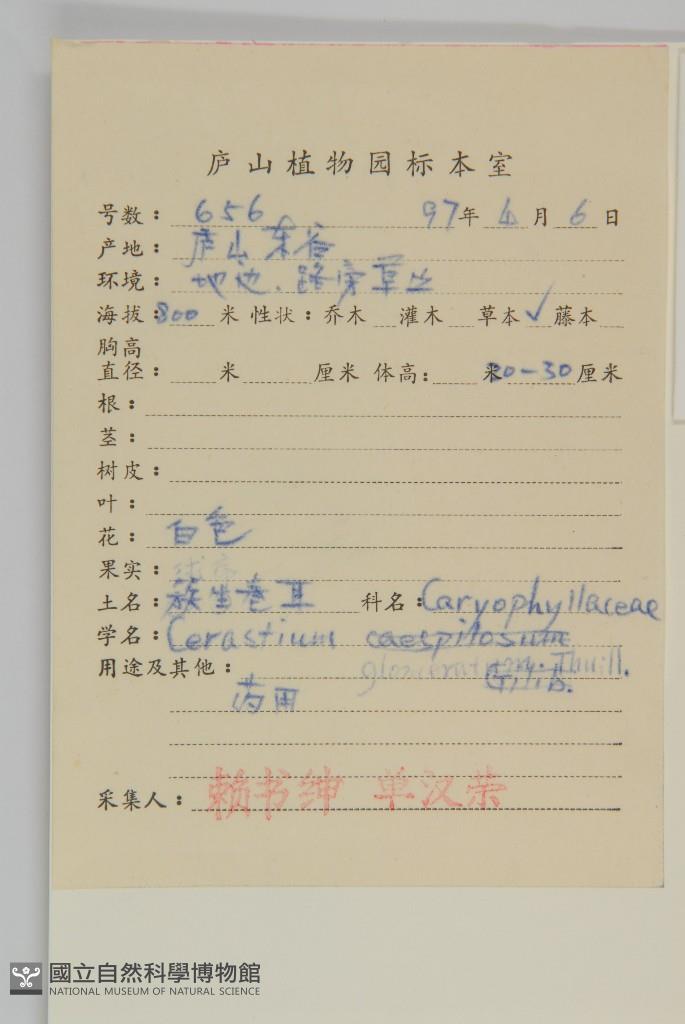 庐山植物园标本室
号数：656 97年4月6日
产地：庐山东谷
环境：地边、路旁草丛
海拔：800米 性状：乔木 灌木 草本✓ 藤本
胸高
直径： 米 厘米 体高： 米 20-30厘米
根：
茎：
树皮：
叶：
花：白色
果实：
土名：簇生卷耳 科名：Caryophyllaceae
学名：Cerastium caespitosum
用途及其他： glomeratum Thuill.
Gilib.
药用
采集人：赖书绅 单汉荣
國立自然科學博物館
NATIONAL MUSEUM OF NATURAL SCIENCE